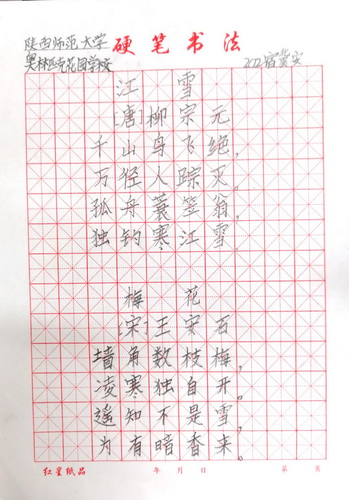 陕西师范大学
奥林匹克花园学校
硬笔书法
江 雪
[唐]柳宗元
千山鸟飞绝，
万径人踪灭。
孤舟蓑笠翁，
独钓寒江雪
梅 花
[宋]王安石
墙角数枝梅，
凌寒独自开。
遥知不是雪，
为有暗香来。
红星纸品 年 月 日 第 页